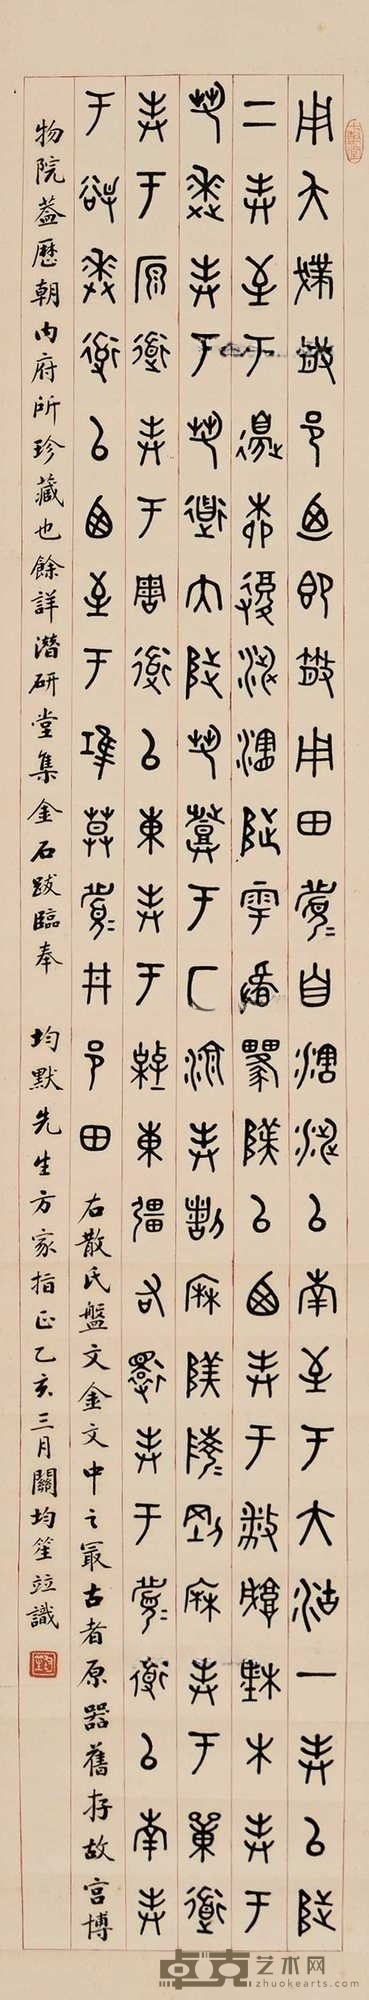 用夨撲散邑迺即散用田眉自瀗涉以南至于大沽一封以陟
二封至于邊柳復涉瀗陟雩以西封于敝城楮木封于
芻逨封于芻道內陟芻登于厂湶封剛封于道
封于原道封于周道以東封于東疆右還封于眉道以南封
于逨道以西至于堆莫眉井邑田
右散氏盤文金文中之最古者原器舊存故宮博
物院蓋歷朝內府所珍藏也餘詳潛研堂集金石跋臨奉 均默先生方家指正乙亥三月關均笙竝識
卓克艺术网
zhuokearts.com